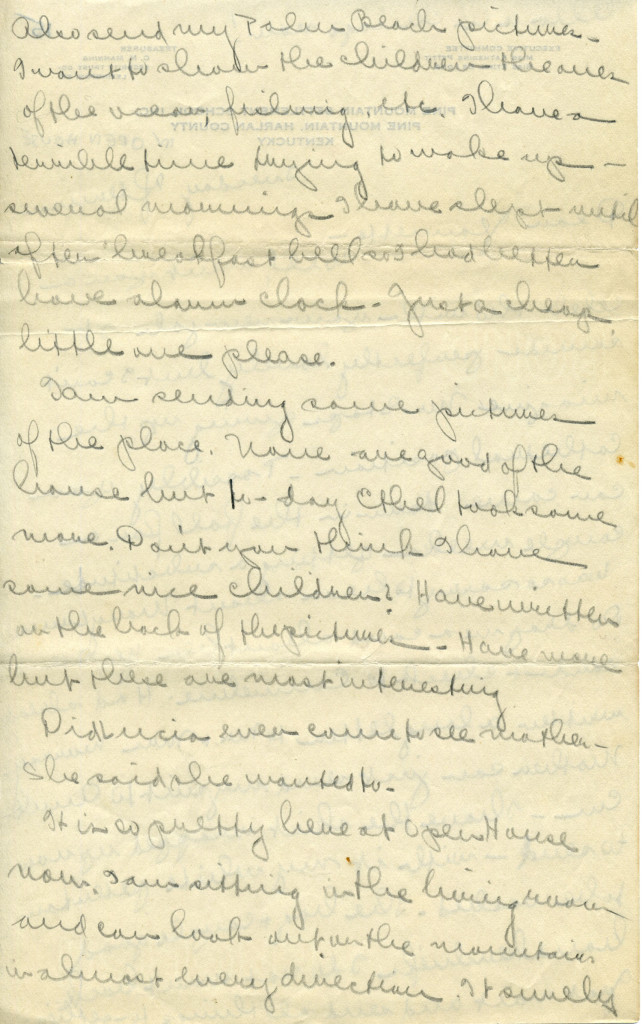 Also send my Palm Beach pictures -
I want to show the children the ones
of the ocean, fishing etc. I have a
terrible time trying to wake up -
several mornings I have slept until
after breakfast bell so I had better
have alarm clock - Just a cheap
little one please.
I am sending some pictures
of the place. None are good of the
house but to-day Ethel took some
more. Don't you think I have
some nice children? Have written
on the back of the pictures - Have more
but these are most interesting
Did Lucia ever come to see mother -
She said she wanted to -
It is so pretty here at Open House
now. I am sitting in the living room
and can look out on the mountains
in almost every direction. It surely
PINE MOUNTAIN, HARLAN COUNTY
KENTUCKY